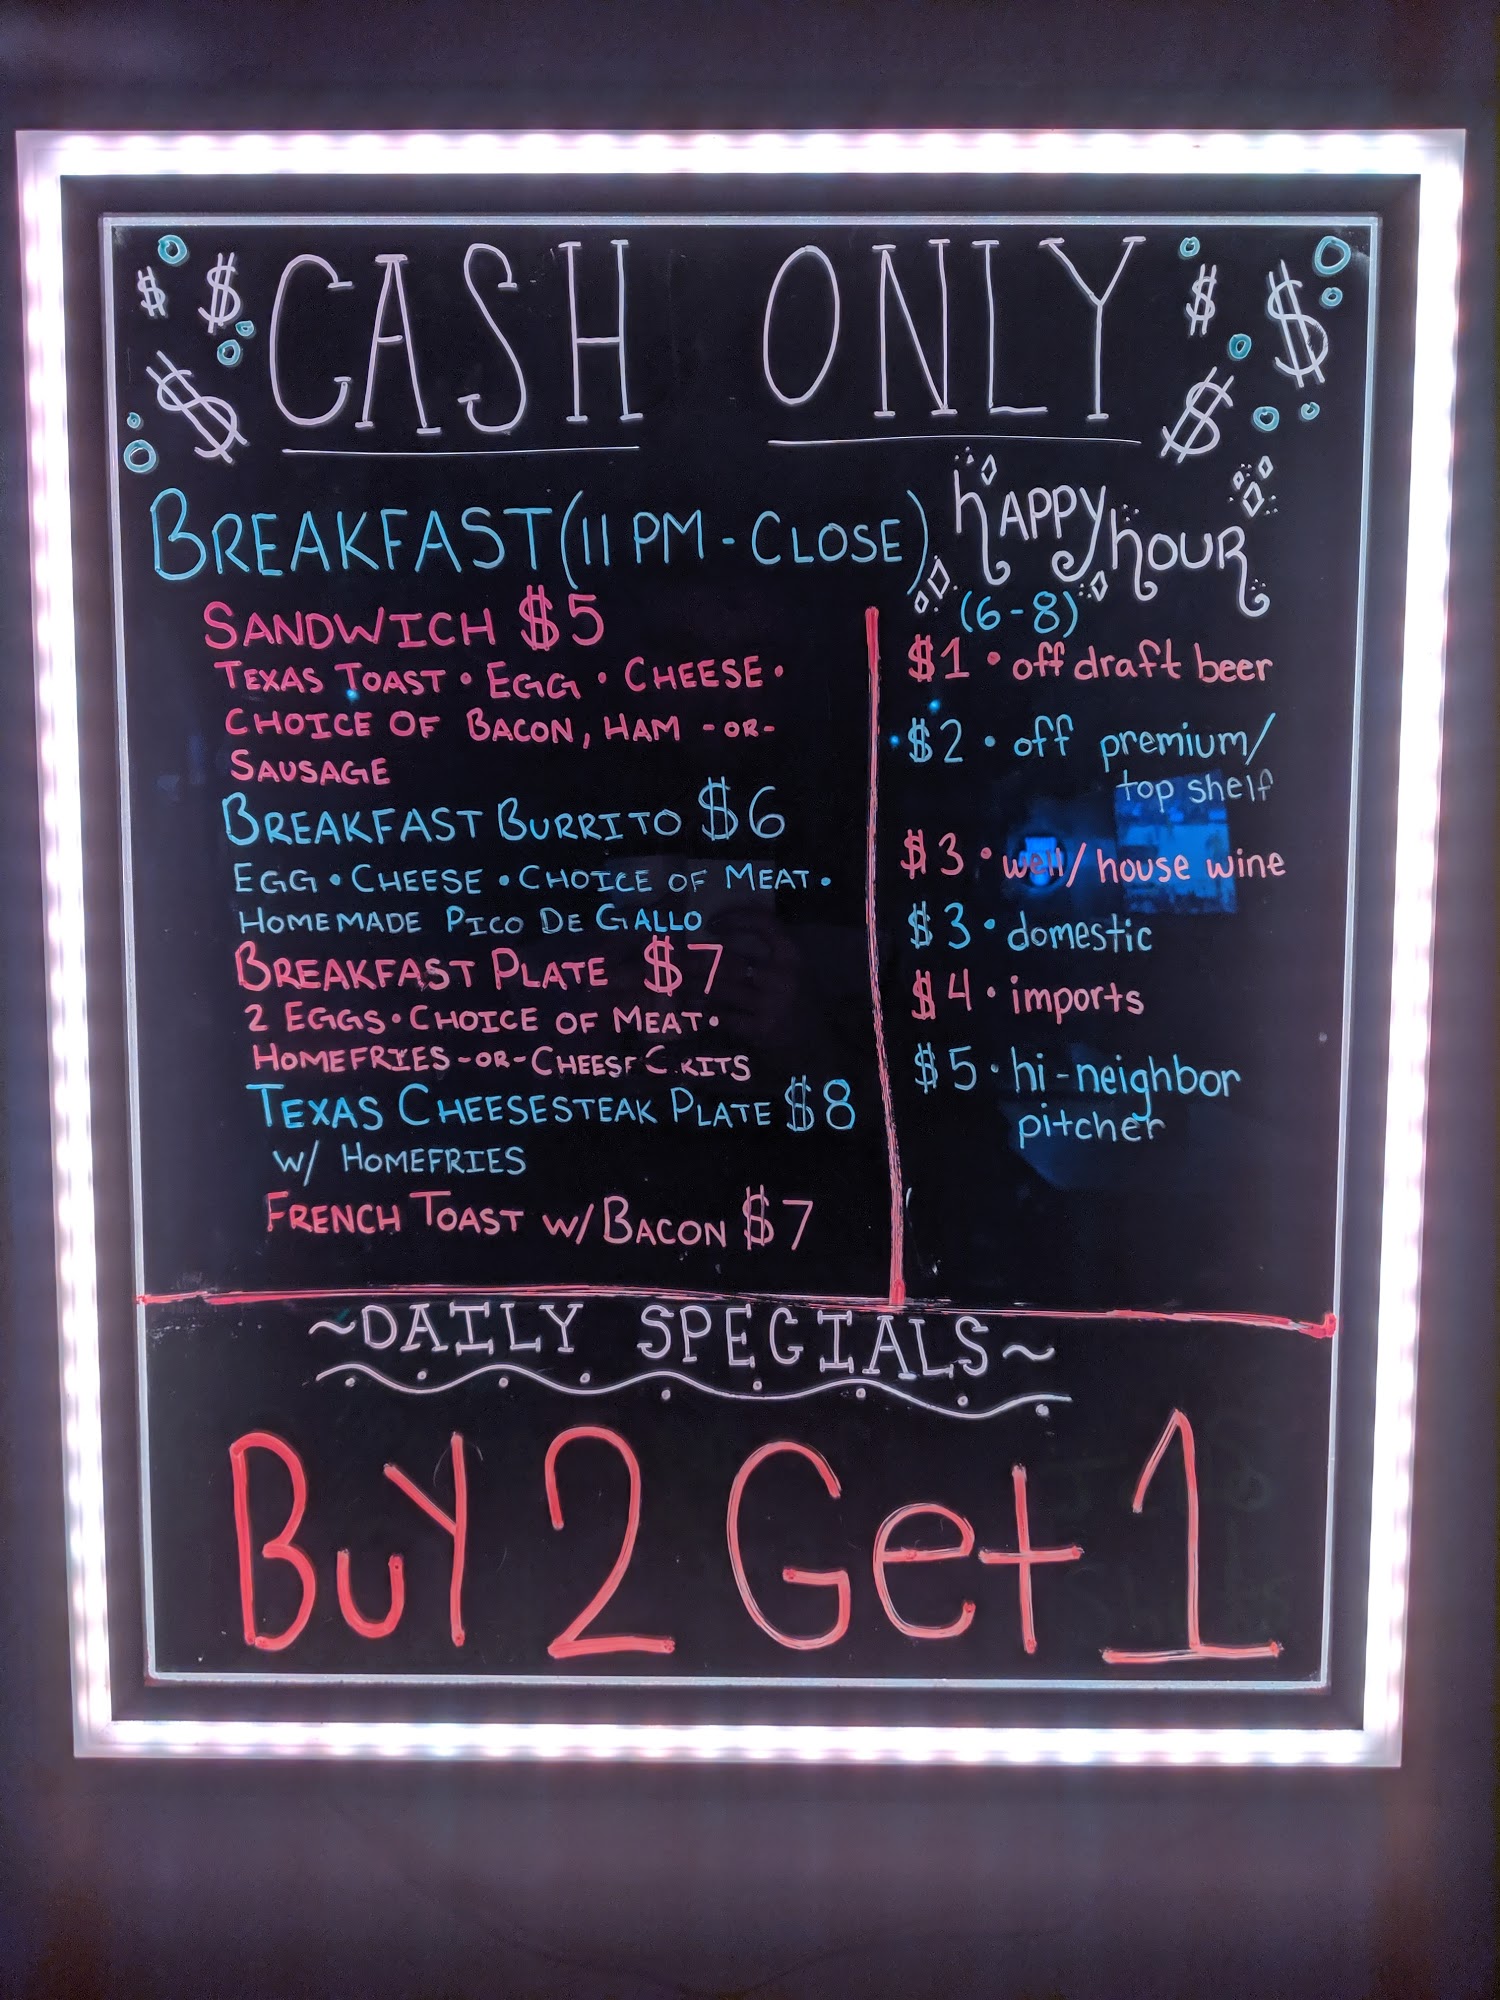 CASH ONLY
BREAKFAST (11 PM - CLOSE)
SANDWICH $5
TEXAS TOAST • EGG • CHEESE •
CHOICE OF BACON, HAM -OR-
SAUSAGE
BREAKFAST BURRITO $6
EGG • CHEESE • CHOICE OF MEAT •
HOMEMADE PICO DE GALLO
BREAKFAST PLATE $7
2 EGGS • CHOICE OF MEAT •
HOMEFRIES -OR- CHEESE GRITS
TEXAS CHEESESTEAK PLATE $8
W/ HOMEFRIES
FRENCH TOAST W/ BACON $7
hAPPy hOUR
(6-8)
$1 • off draft beer
$2 • off premium/
top shelf
$3 • well/ house wine
$3 • domestic
$4 • imports
$5 • hi-neighbor
pitcher
~DAILY SPECIALS~
BuY 2 Get 1